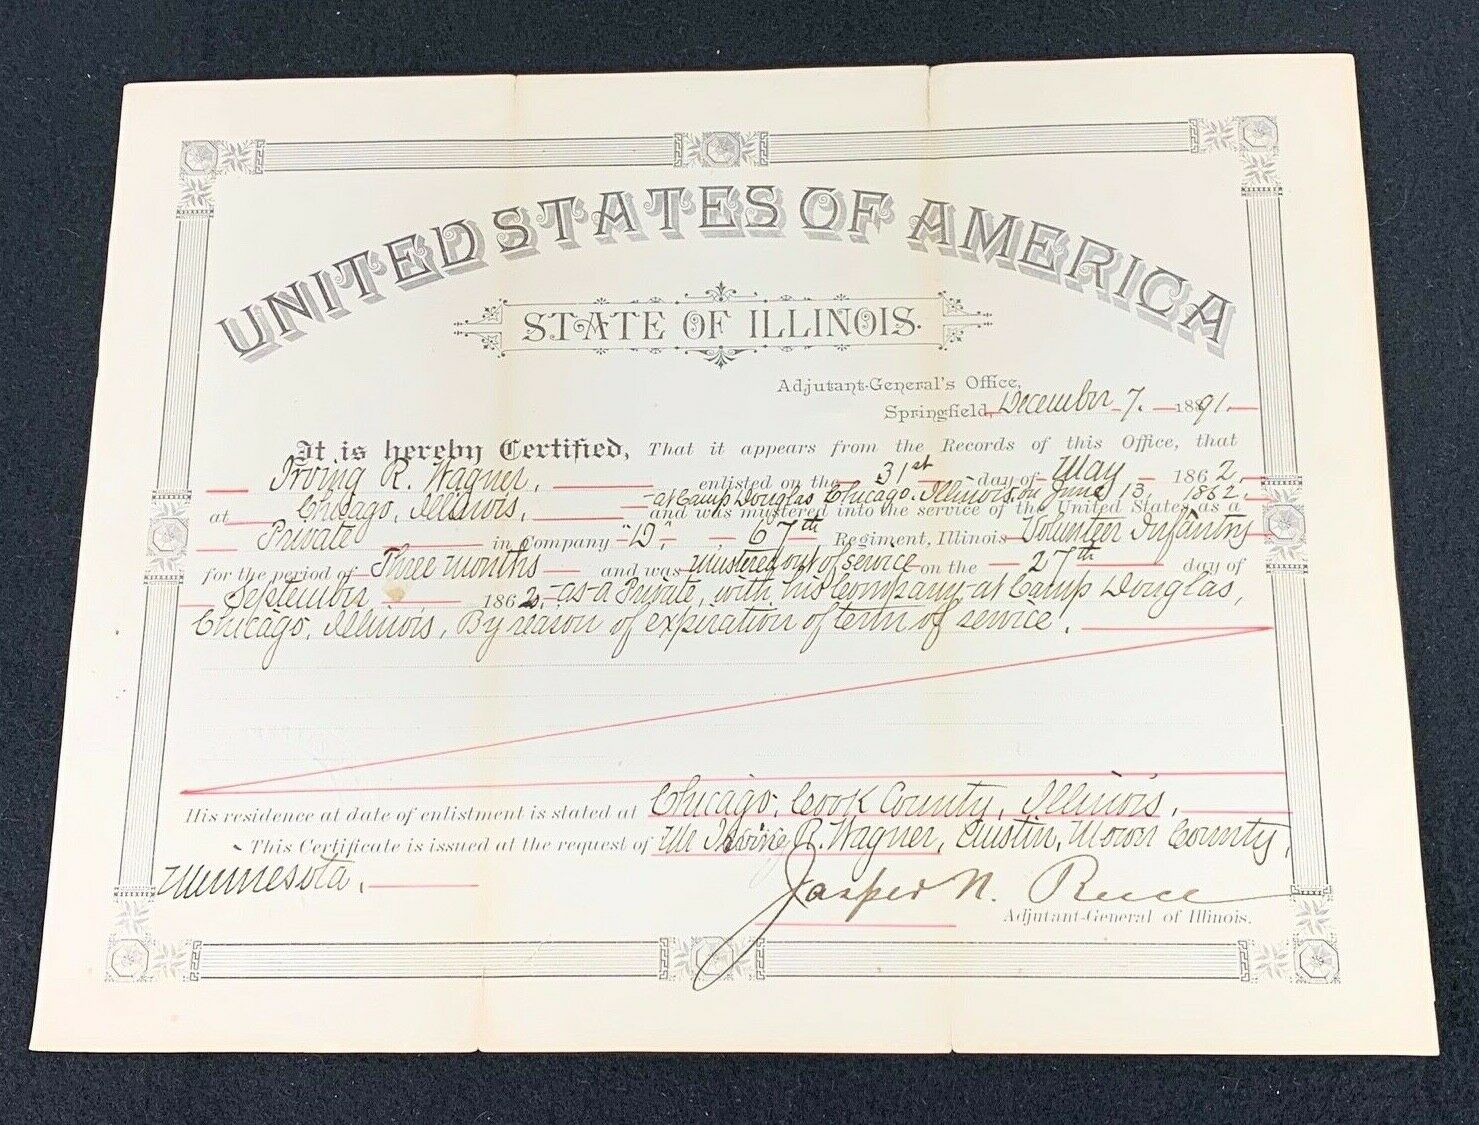 UNITED STATES OF AMERICA
STATE OF ILLINOIS.
Adjutant-General's Office,
Springfield, December 7. 1891.
It is hereby Certified, That it appears from the Records of this Office, that
Irving R. Wagner, enlisted on the 31st day of May 1862,
at Chicago, Illinois, -at Camp Douglas Chicago. Illinois, on June 13, 1862.
and was mustered into the service of the United States as a
Private in Company "D", 67th Regiment, Illinois Volunteer Infantry
for the period of Three months and was mustered out of service on the 27th day of
September 1862, -as a Private, with his Company at Camp Douglas,
Chicago, Illinois, By reason of expiration of term of service.
His residence at date of enlistment is stated at Chicago, Cook County, Illinois,
This Certificate is issued at the request of Mr Irving R. Wagner, Austin, Mower County,
Minnesota,
Jasper N. Reece
Adjutant-General of Illinois.